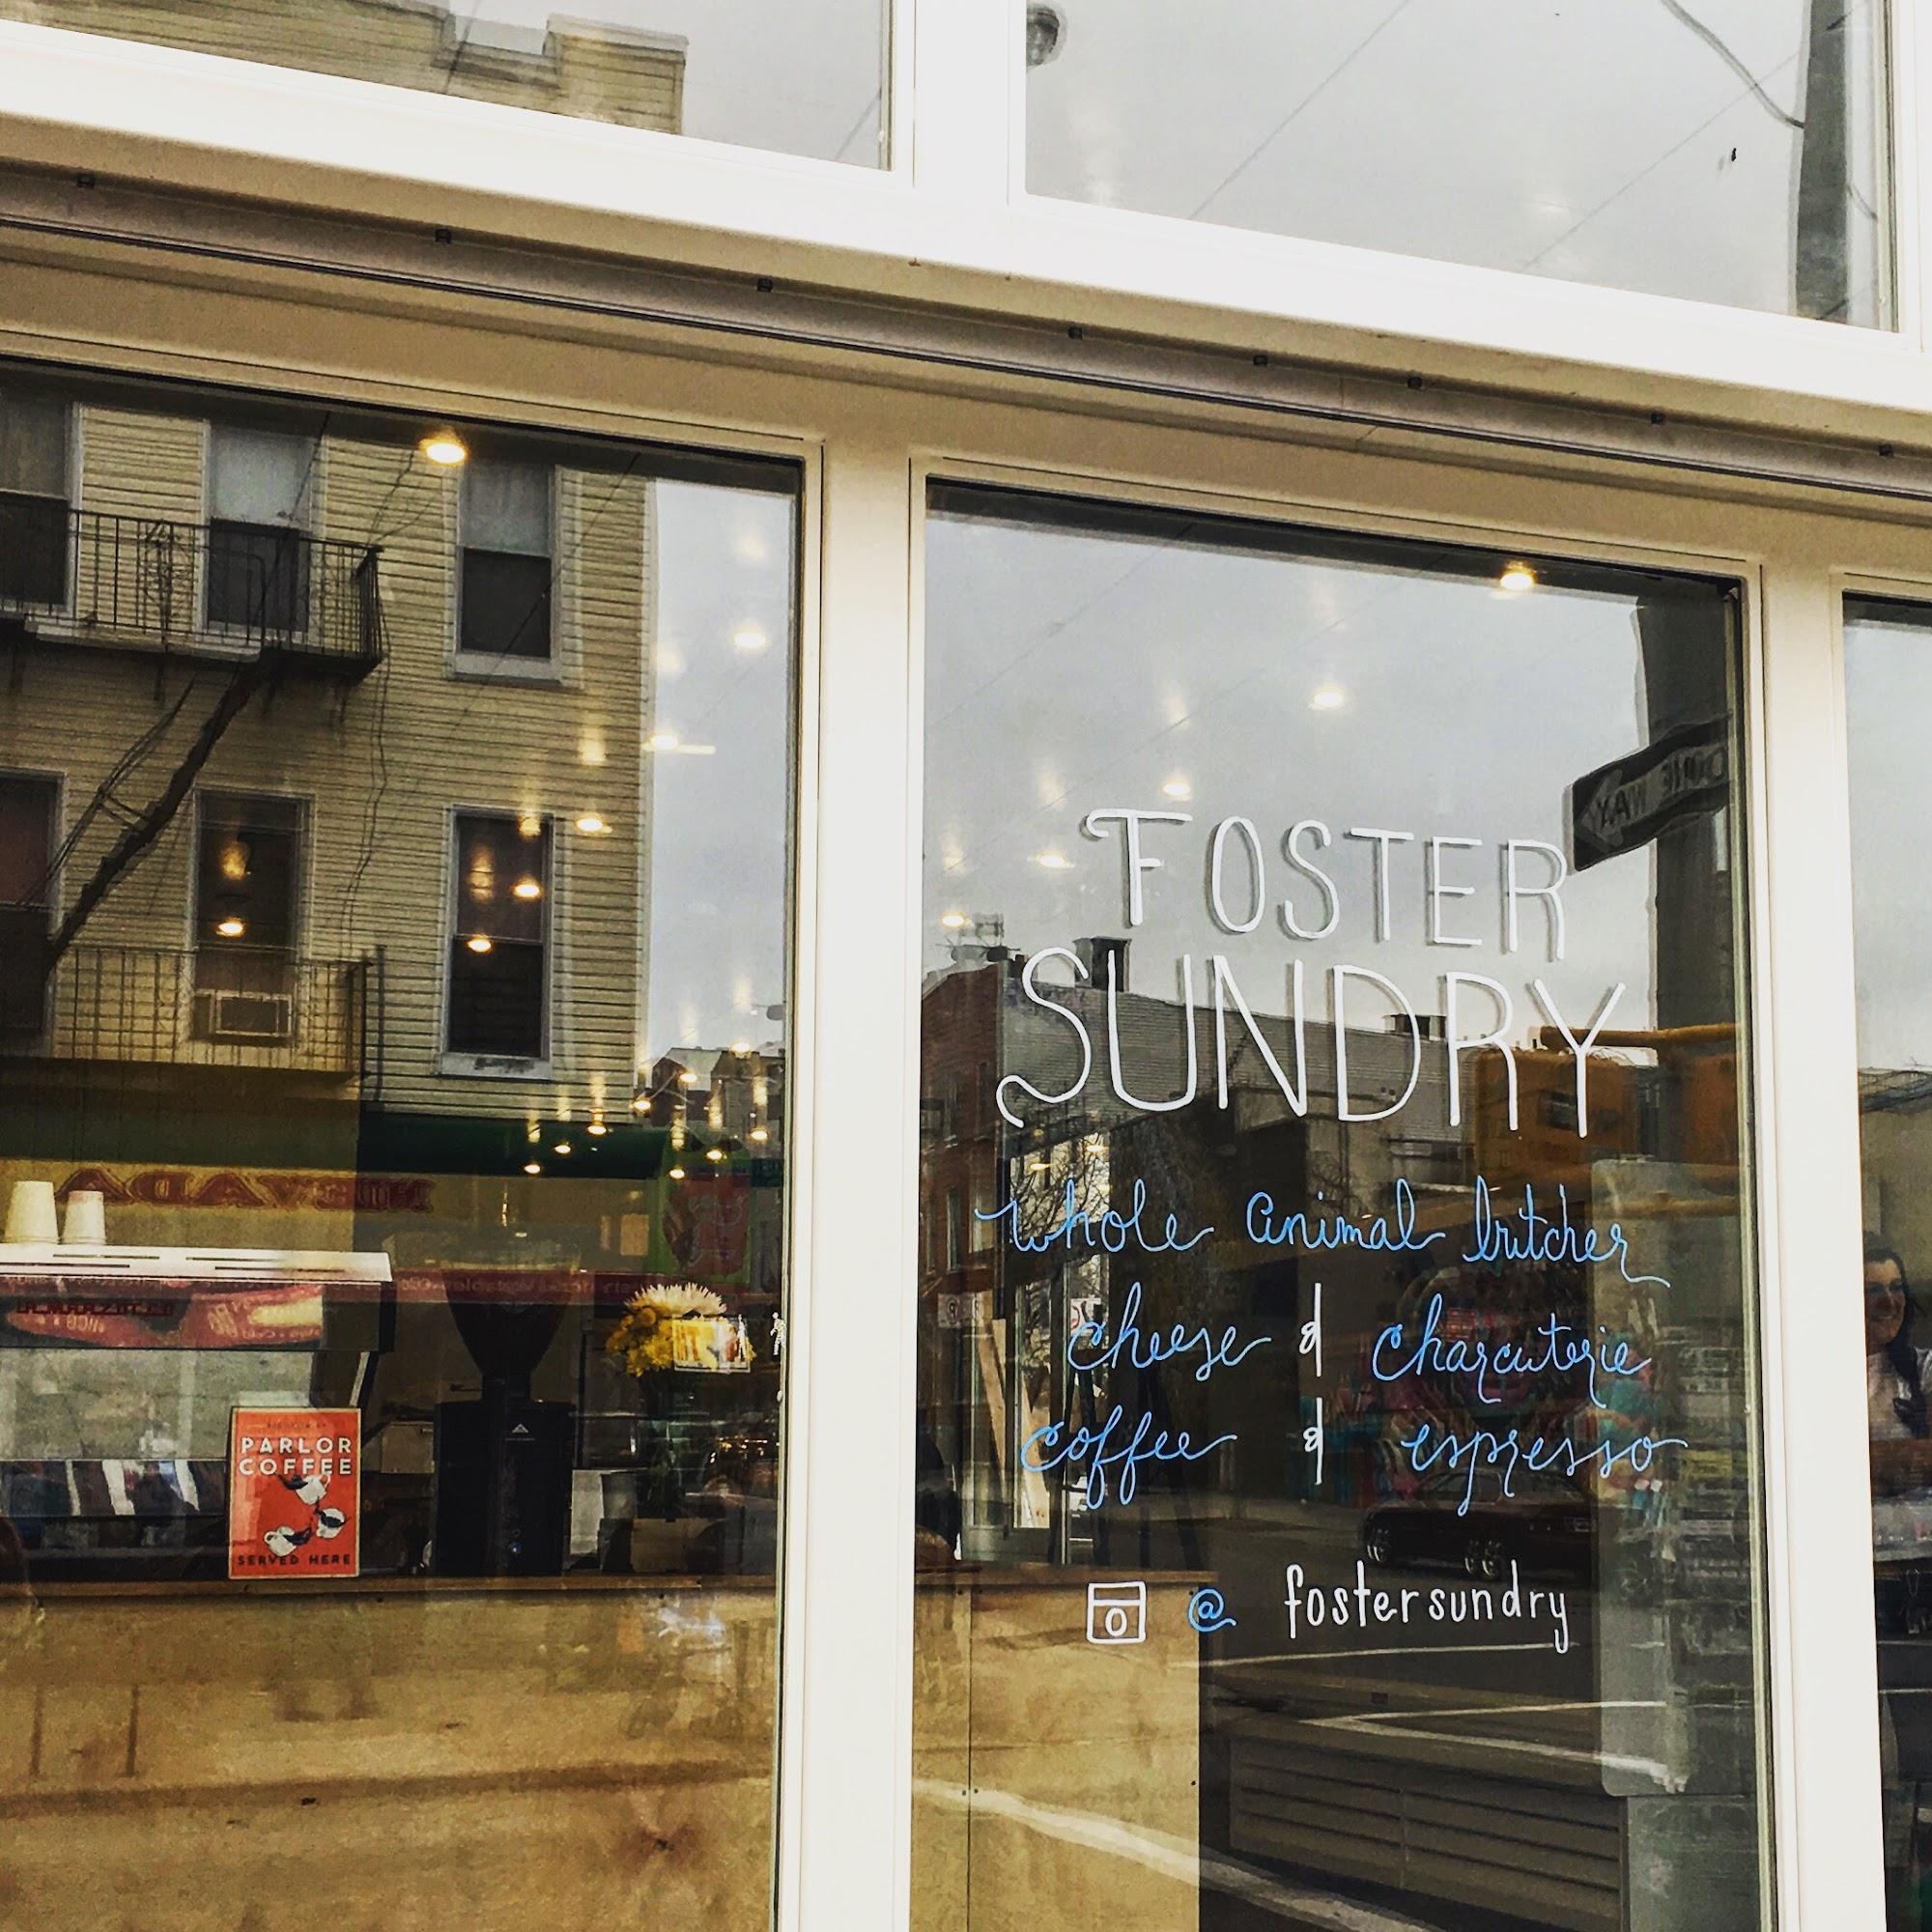 FOSTER
SUNDRY
whole animal butcher
cheese & charcuterie
coffee & espresso
@ fostersundry
PARLOR
COFFEE
SERVED HERE
ONE WAY